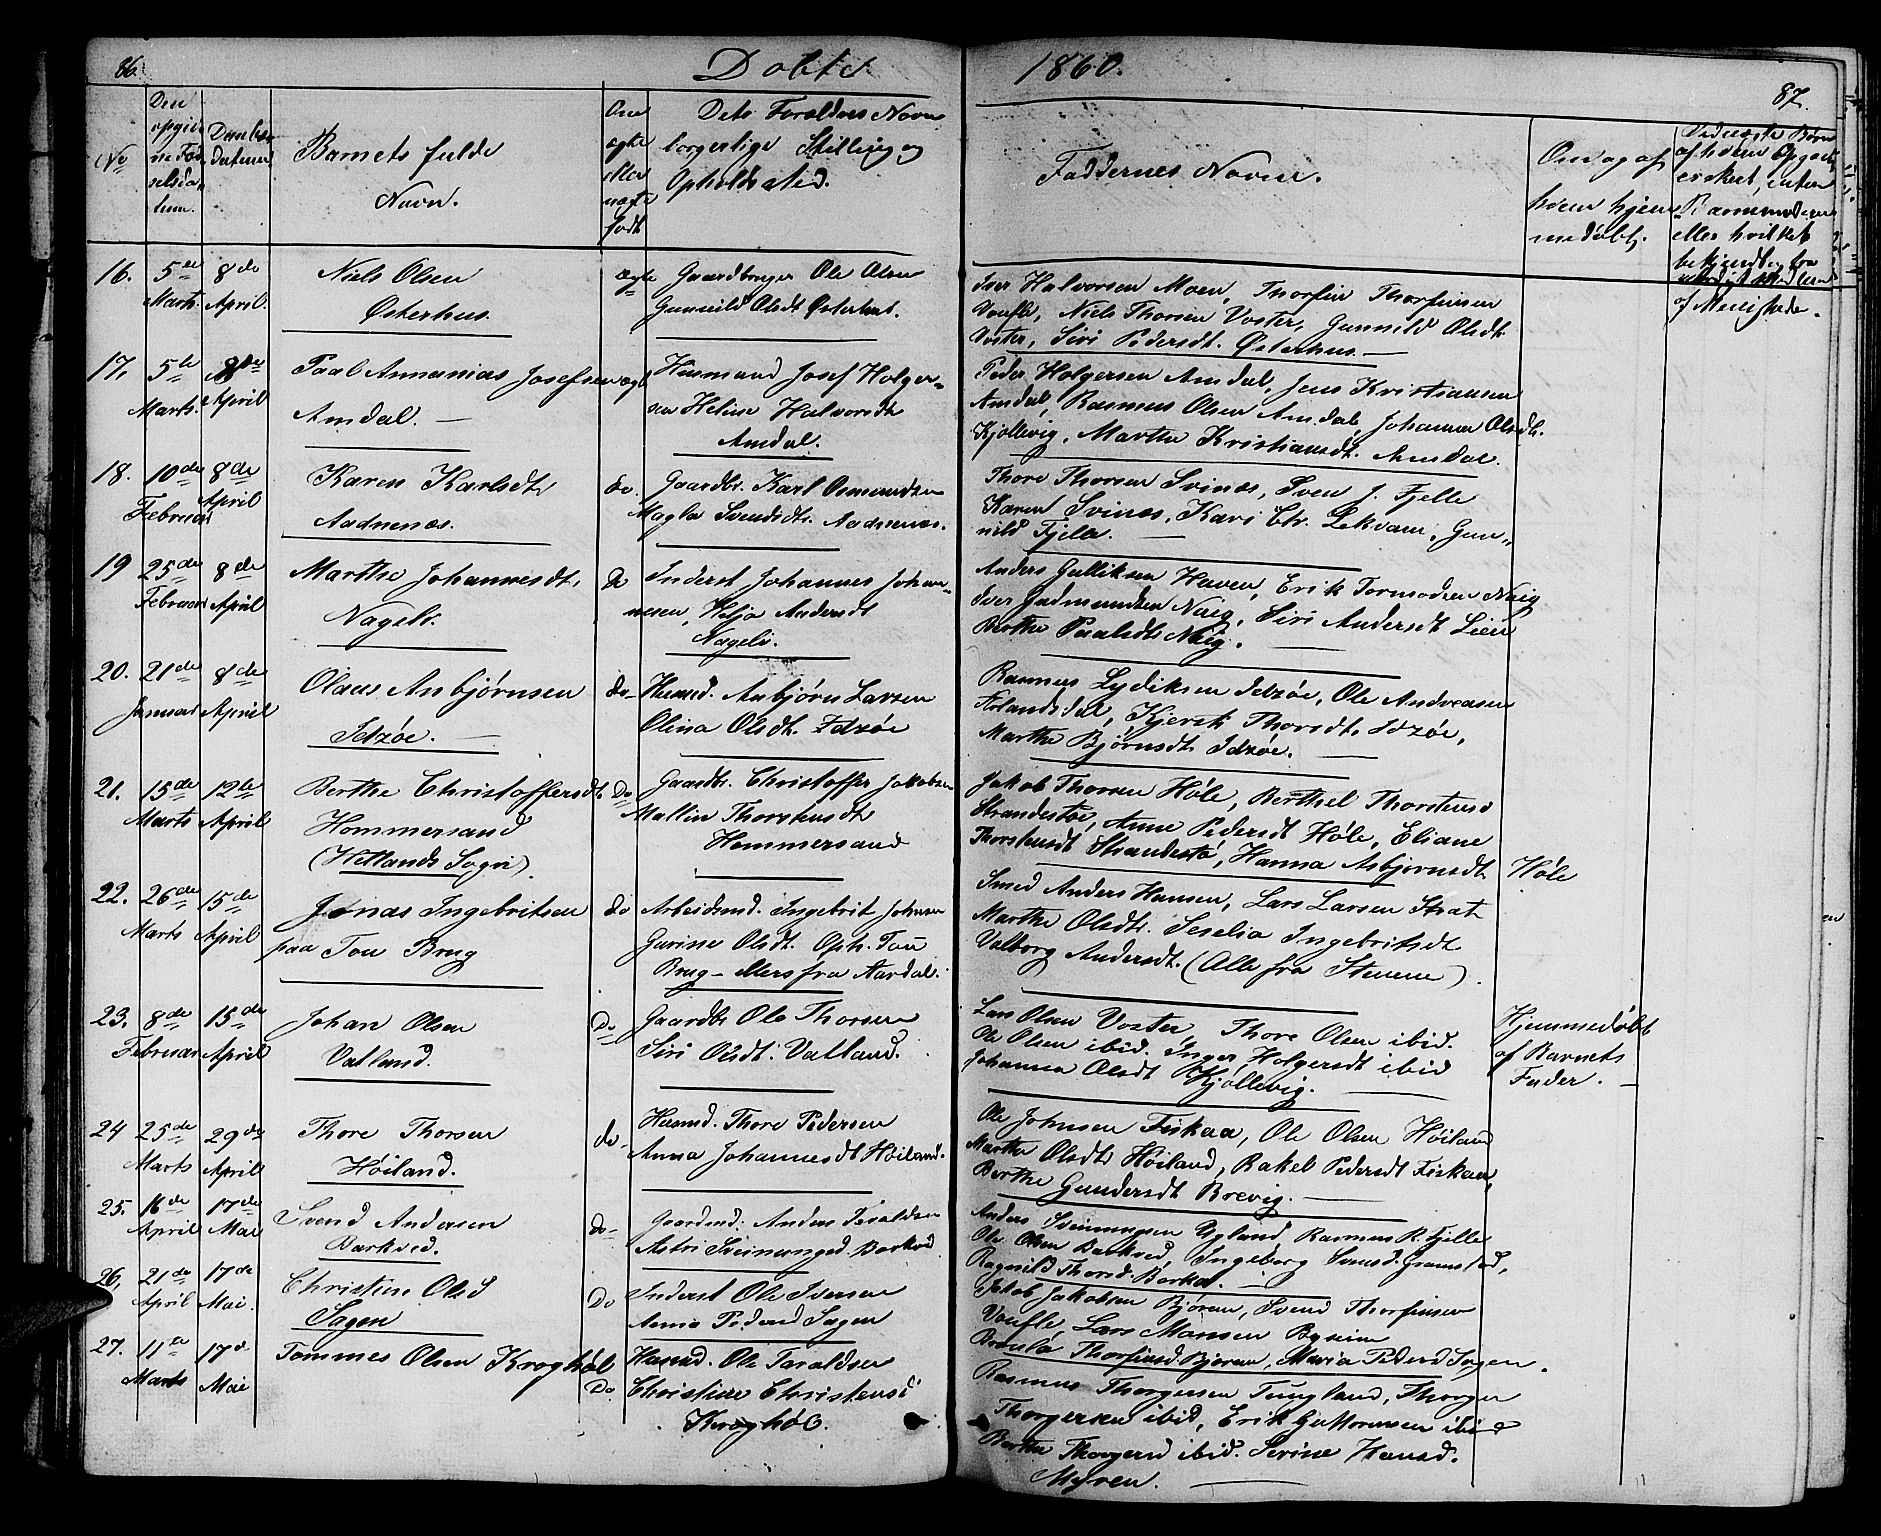 86.
Døbte
1860.
87.
No
Den opgivne Fødselsdatum.
Daabsdatumen
Barnets fulde Navn.
Om ægte eller uægte født
Dets Forældres Navn borgerlige Stilling og Opholdssted.
Faddernes Navne.
Om og af hvem hjemmedøbt.
16. 5te Marts. 8de April.
Niels Olsen
Østerhus.
ægte
Gaardbruger Ole Olsen
Gunnild Olsdt Østerhus.
Iver Halvorsen Moen, Thorfin Thorfinsen
Voufle, Niels Thorsen Voster, Gunnild Olsdt.
Voster, Siri Pedersdt. Østerhus. —
17. 5te Marts. 8de April
Paal Annanias Josefsen
Amdal. —
ægt
Husmand Josef Holger-
sen Helene Halvorsdt
Amdal.
Peder Holgersen Amdal, Jens Kristiansen
Amdal, Rasmus Olsen Amdal, Johanna Olsdt.
Kjøllevig, Marthe Kristiansdt. Amdal.
18. 10de Februar 8de April
Karen Karlsdt.
Aadnenæs.
do.
Gaardbr. Karl Osmundsen
Magla Svendsdt. Aadnenæs.
Thore Thorsen Svinæs, Sven J. Fjelle
Karen Svinæs, Kari Chr. Lekvam, Gun-
nild Fjelle. —
19 25de Februar 8de April
Marthe Johannesdt.
Nageli.
Do
Inderst Johannes Johan-
nesen, Helja Andersdt
Nageli.
Anders Gulliksen Haven, Erik Tormodsen Naig
Iver Gudmundsen Naig, Siri Andersdt Lien
Berthe Paalsdt. Naig. —
20. 21de Januar 8de April
Olaus Anbjørnsen
Idzøe. —
do-
Husmd. Anbjørn Larsen
Olina Olsdt. Idzøe
Rasmus Lydiksen Idzøe, Ole Andreasen
Forlandsdal, Kjersti Thorsdt. Idzøe,
Marthe Bjørnsdt Idzøe. —
21. 15de Marts 12te April
Berthe Christoffersdt.
Hommersand
(Hetlands Sogn).
Do
Gaardbr. Christoffer Jakobsen
Mallin Thorstensdt
Hommersand
Jakob Thorsen Høle, Berthel Thorstens
Strandestøe, Anne Pedersdt Høle, Eliane
Thorstensdt Strandestø, Hanna Asbjørnsdt. Høle
22. 26de Marts 15de April
Jonas Ingebritsen
paa Tou Brug
do
Arbeidsmd. Ingebrit Johnsen
Gurine Olsdt. Oph. Tou
Brug - ellers fra Aardal.
Smed Anders Hansen, Lars Larsen Strat
Marthe Olsdt. Seselia Ingebritsdt.
Valborg Andersdt. (Alle fra Stenene).
23. 8de Februar 15de April
Johan Olsen
Vatland.
Do
Gaardbr Ole Thorsen
Siri Olsdt. Vatland.
Lars Olsen Voster Thore Olsen ibid.
Ole Olsen ibid. Inger Holgersdt ibid
Johanna Olsdt Kjøllevig. —
Hjemmedøbt
af Barnets
Fader. —
24 25de Marts 29de April
Thore Thorsen
Høiland.
do-
Husmd. Thore Pedersen
Anna Johannesdt Høiland.
Ole Johnsen Fiskaa, Ole Olsen Høiland
Marthe Olsdt. Høiland, Rakel Pedersdt Fiskaa,
Berthe Gundersdt Brevig. —
25. 16de April 17de Mai
Svend Andersen
Barkved.
do-
Gaardmd. Anders Taraldsen
Astri Sveinungsd Barkved
Anders Sveinungsen Ygland, Rasmus R. Fjelle
Ole Olsen Barkved, Ingeborg Svensd. Gramstad,
Ragnild Thorsd. Barka. —
26. 21de April 17de Mai.
Christine Olsd
Sagen
Do
Inderst Ole Iversen
Anna Pedersd Sagen
Jakob Jakobsen Bjøren, Svend Thorfinsen
Voufle Lars Monsen
Thorfinsd Bjøren, Maria Pedersd Sagen.
27. 11te Marts 17d Mai
Tommes Olsen Kroghøl
Do.
Husmd. Ole Taraldsen
Christine Christensd
Kroghøl.
Rasmus Thorgersen Tungland, Thorger
Thorgersen ibid, Erik Guttormsen ibid
Berthe Thorgersd ibid. Serine Hansd.
Myren. —